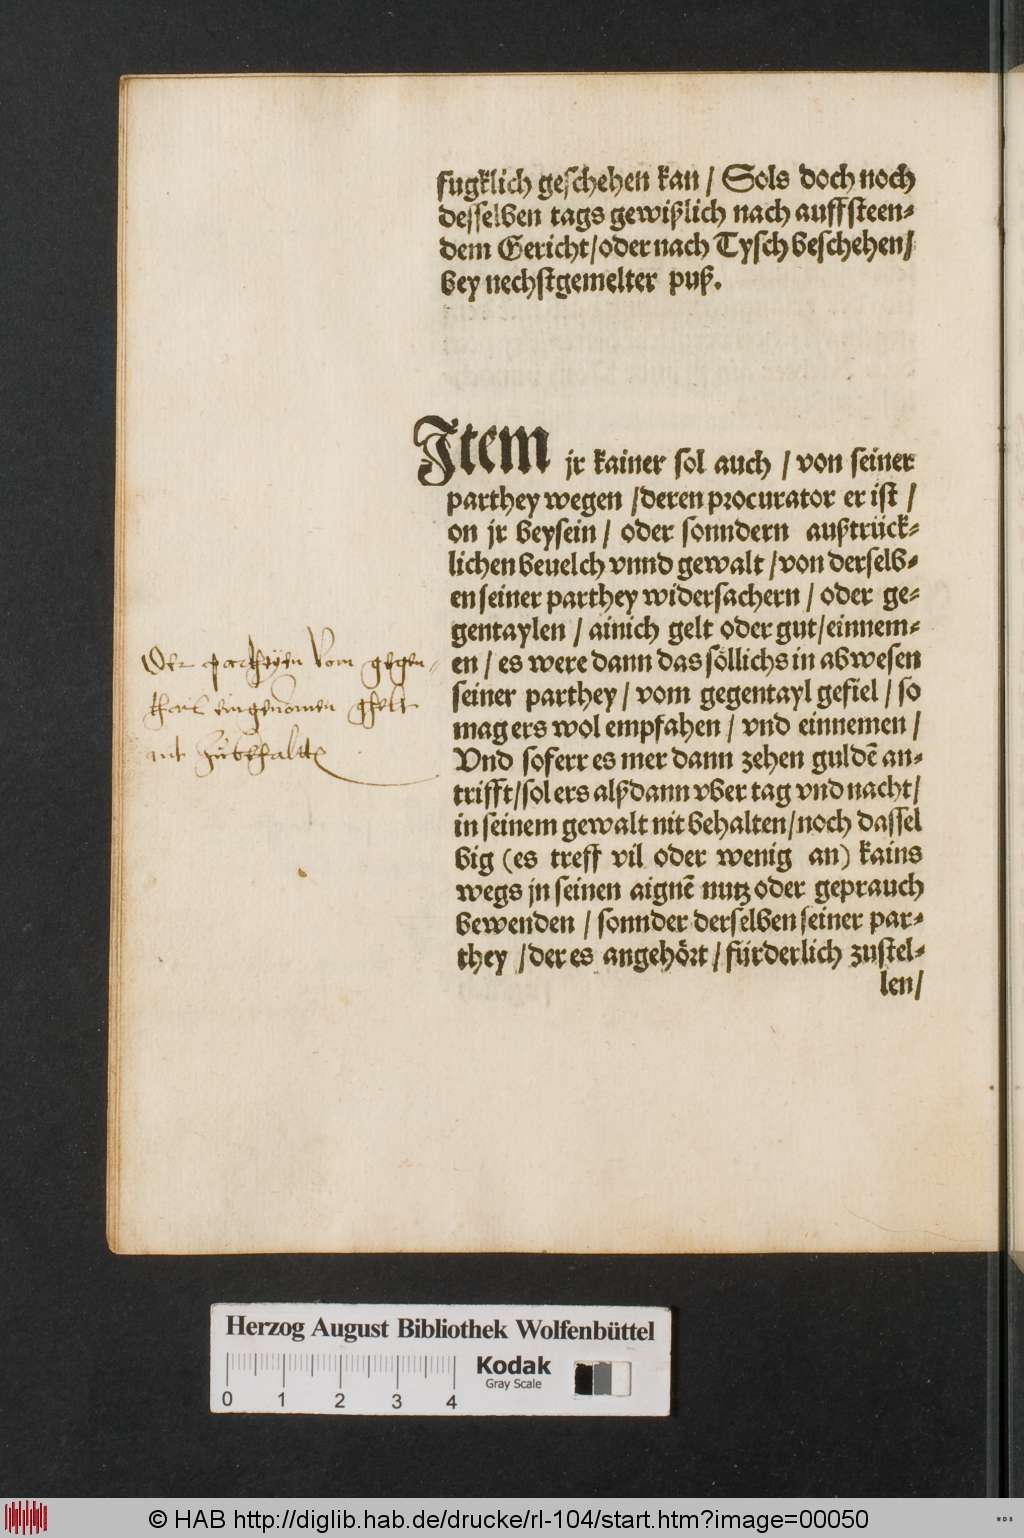 fugklich geschehen kan / Sols doch noch
desselben tags gewißlich nach auffsteen⸗
dem Gericht / oder nach Tysch beschehen /
bey nechstgemelter puß.
Item jr kainer sol auch / von seiner
parthey wegen / deren procurator er ist /
on jr beysein / oder sonndern außtrück⸗
lichen beuelch vnnd gewalt / von derselb⸗
en seiner parthey widersachern / oder ge⸗
gentaylen / ainich gelt oder gut / einnem⸗
en / es were dann das söllichs in abwesen
seiner parthey / vom gegentayl gefiel / so
mag ers wol empfahen / vnd einnemen /
Vnd soferr es mer dann zehen guldē an⸗
trifft / sol ers alßdann vber tag vnd nacht /
in seinem gewalt nit behalten / noch dassel
big (es treff vil oder wenig an) kains
wegs jn seinen aignē nutz oder geprauch
bewenden / sonnder derselben seiner par⸗
they / der es angehört / fürderlich zustel⸗
len /
Der partheyen vom gegen⸗
thail eingenomen gelt
nit
Herzog August Bibliothek Wolfenbüttel
Kodak
Gray Scale
0 1 2 3 4
© HAB http://diglib.hab.de/drucke/rl-104/start.htm?image=00050